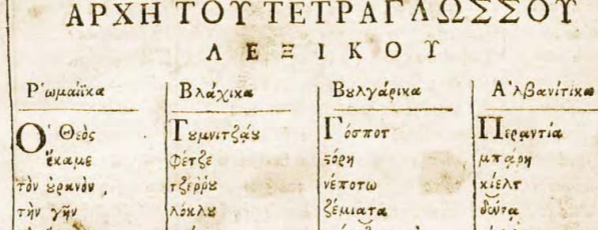 ΑΡΧΗ ΤΟΥ ΤΕΤΡΑΓΛΩΣΣΟΥ
ΛΕΞΙΚΟΥ
Ῥωμαίϊκα Βλάχικα Βȣλγάρικα Ἀλβανίτικα
Ὁ Θεὸς Γυμνιτζάȣ Γόσποτ Περαντία
ἔκαμε φέτζε στόρη μπάρη
τὸν ȣ̓ρανὸν, τζέρρȣ νέποτω κίελτ
τὴν γῆν λόκλȣ ζέμιατα δέυτα